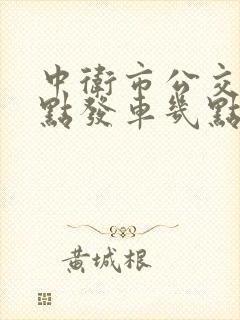 中衛市公交
點發車幾點
黃城根